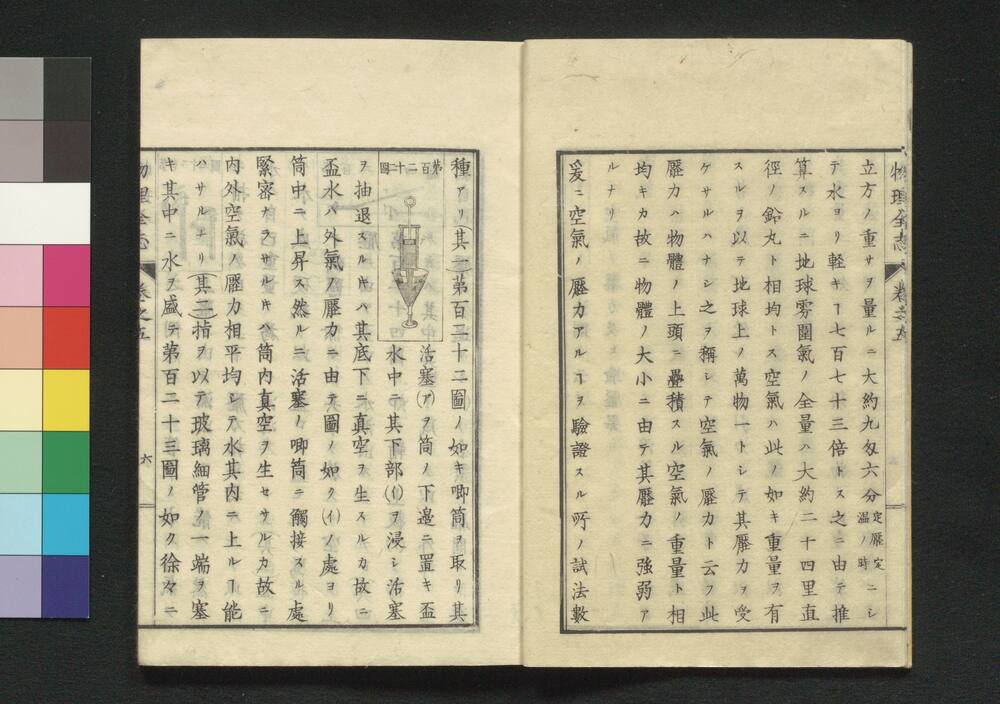 物理全志 卷之五
立方ノ重サヲ量ルニ大約九匁六分定壓定温ノ時ニシ
テ水ヨリ輕キヿ七百七十三倍トス之ニ由テ推
算スルニ地球雰圍氣ノ全量ハ大約二十四里直
徑ノ鉛丸ト相均トス空氣ハ此ノ如キ重量ヲ有
スルヲ以テ地球上ノ萬物一トシテ其壓力ヲ受
ケサルハナシ之ヲ稱シテ空氣ノ壓力ト云フ此
壓力ハ物體ノ上頭ニ疊積スル空氣ノ重量ト相
均キカ故ニ物體ノ大小ニ由テ其壓力ニ強弱ア
ルナリ
爰ニ空氣ノ壓力アルヿヲ驗證スル所ノ試法數
種アリ(其一)第百二十二圖ノ如キ喞筒ヲ取リ其
第百二十二圖
活塞(ア)ヲ筒ノ下邊ニ置キ盃
水中ニ其下部(イ)ヲ浸シ活塞
ヲ抽退スルキハ其底下ニ真空ヲ生スルカ故ニ
盃水ハ外氣ノ壓力ニ由テ圖ノ如ク(イ)ノ處ヨリ
筒中ニ上昇ス然ルニ活塞ノ喞筒ニ觸接スル處
緊密ナラサルキハ筒内真空ヲ生セサルカ故ニ
内外空氣ノ壓力相平均シテ水其内ニ上ルヿ能
ハサルナリ(其二)指ヲ以テ玻璃細管ノ一端ヲ塞
キ其中ニ水ヲ盛テ第百二十三圖ノ如ク徐々ニ
物理全志 卷之五 六